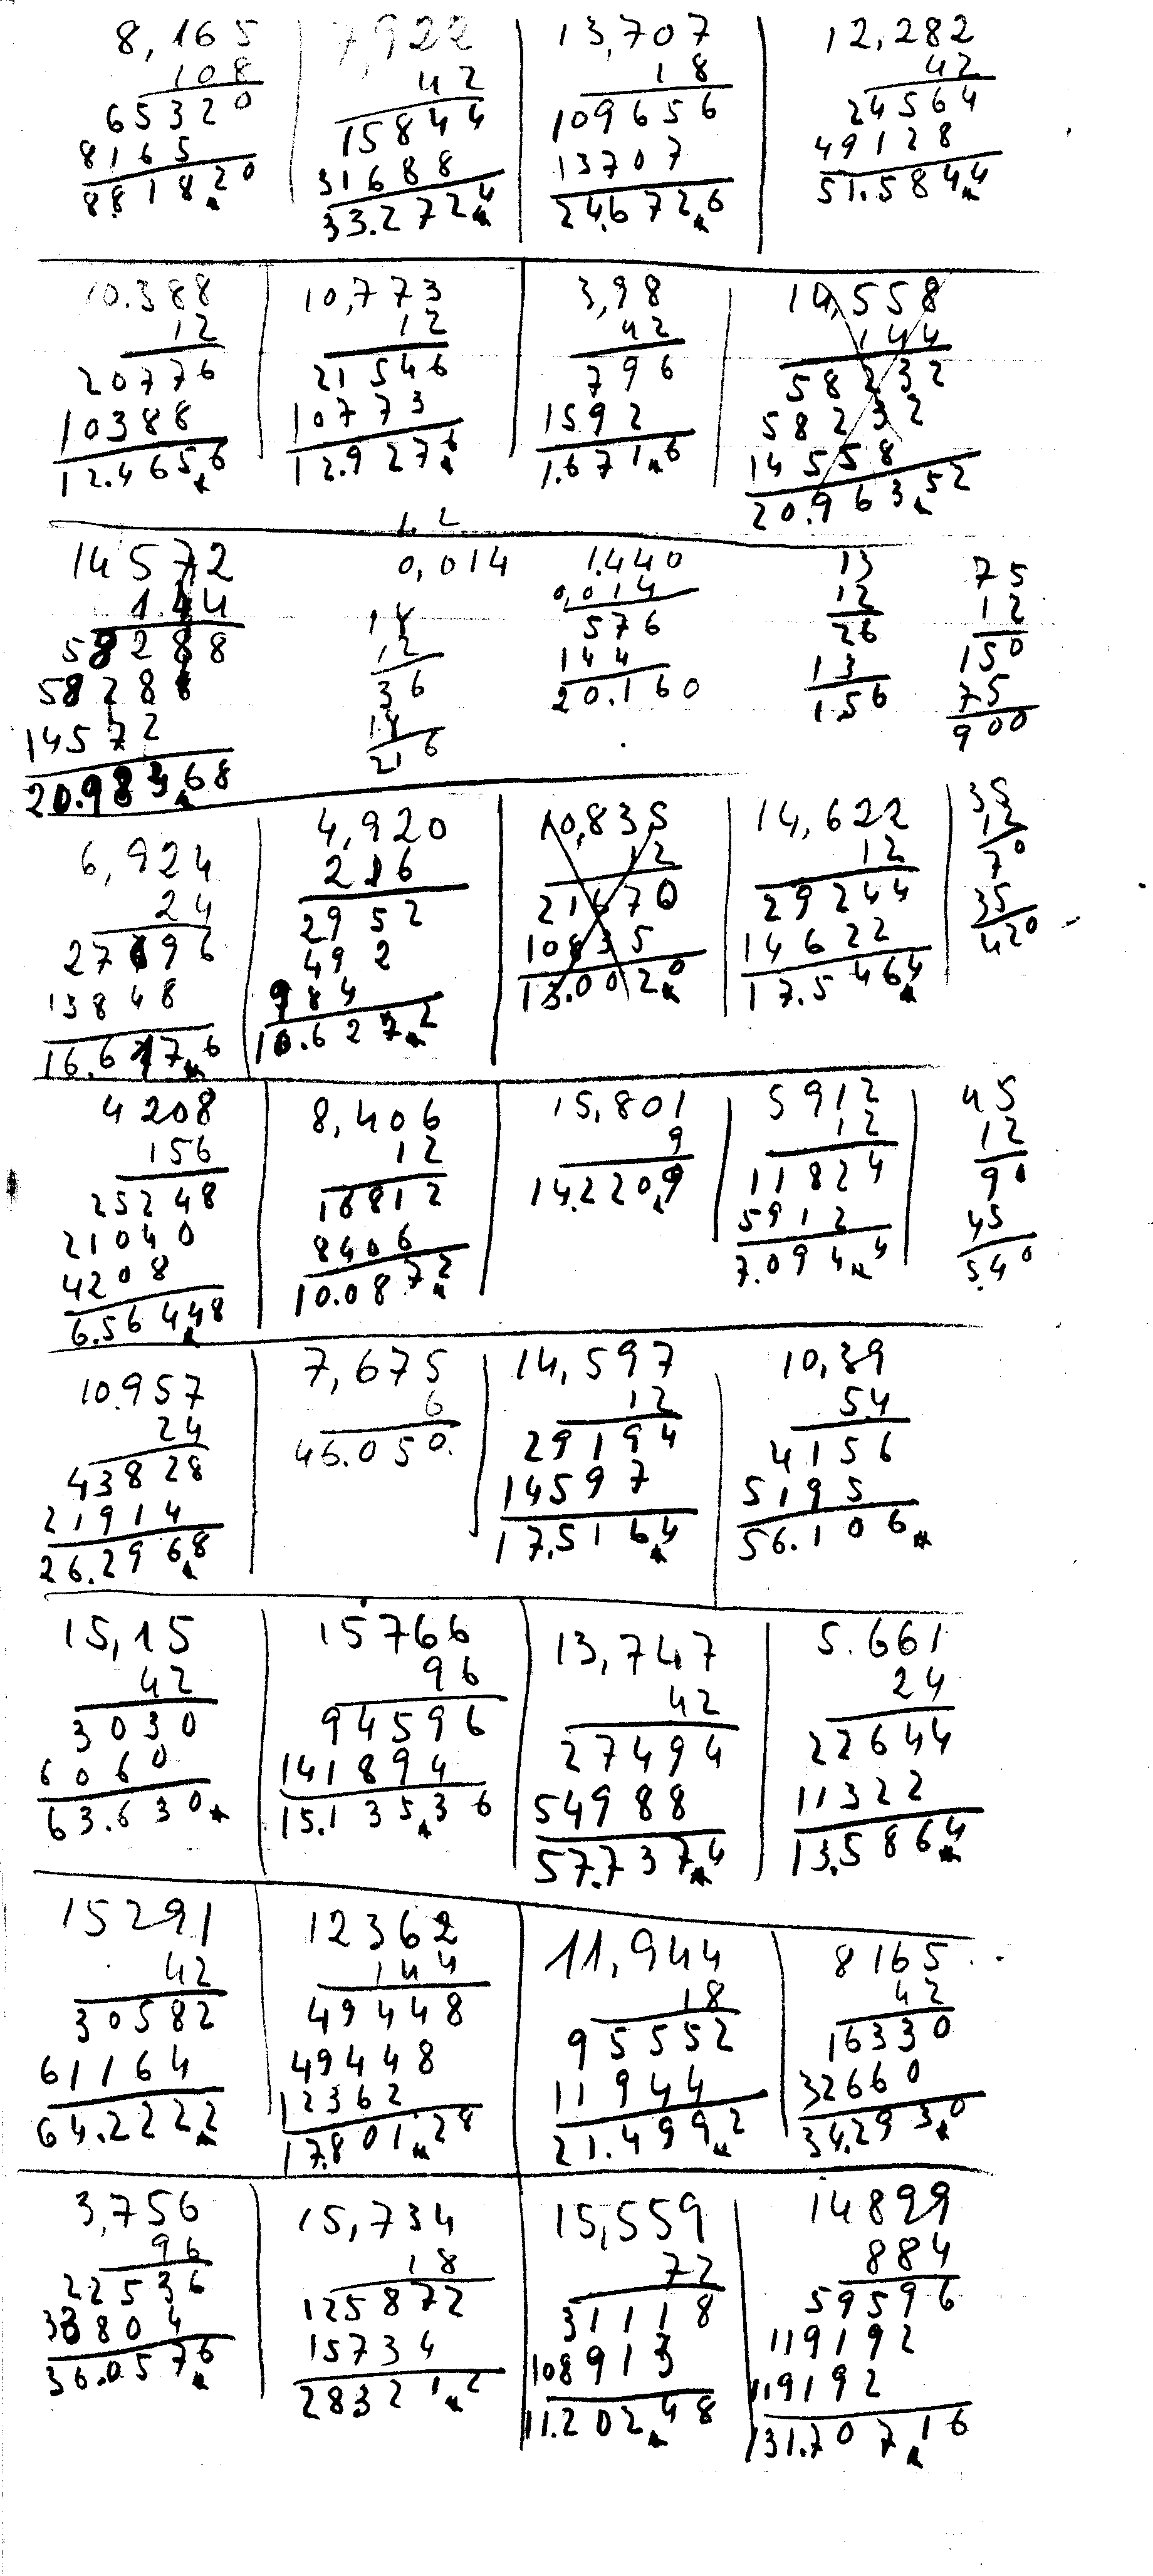 8,165
108
65320
8165
8818,20
7,922
42
15844
31688
33.272,4
13,707
18
109656
13707
24.672,6
12,282
42
24564
49128
51.584,4
10.388
12
20776
10388
12.465,6
10,773
12
21546
10773
12.927,6
3,98
42
796
1592
1.671,6
14,558
144
58232
58232
14558
20.963,52
14572
144
58288
58288
14572
20.983,68
1.2
0,014
18
12
36
18
216
1.440
0,014
576
144
20.160
13
12
26
13
156
75
12
150
75
900
6,924
24
27696
13848
16.617,6
4,920
216
2952
492
984
10.627,2
10,835
12
21670
10835
13.002,0
14,622
12
29244
14622
17.546,4
35
12
70
35
420
4208
156
25248
21040
4208
6.564,48
8,406
12
16812
8406
10.087,2
15,801
9
14.220,9
5912
12
11824
5912
7.094,4
45
12
90
45
5.40
10.957
24
43828
21914
26.296,8
7,675
6
46.050.
14,597
12
29194
14597
17.516,4
10,39
54
4156
5195
56.106,
15,15
42
3030
6060
63.630,
15766
96
94596
141894
15.135,36
13,747
42
27494
54988
57.737,4
5.661
24
22644
11322
13.586,4
15291
42
30582
61164
64.222,2
12362
144
49448
49448
12362
17.801,28
11,944
18
95552
11944
21.499,2
8165
42
16330
32660
34.293,0
3,756
96
22536
33804
36.057,6
15,734
18
125872
15734
28321,2
15,559
72
31118
108913
11.202,48
14899
884
59596
119192
119192
131.707,16